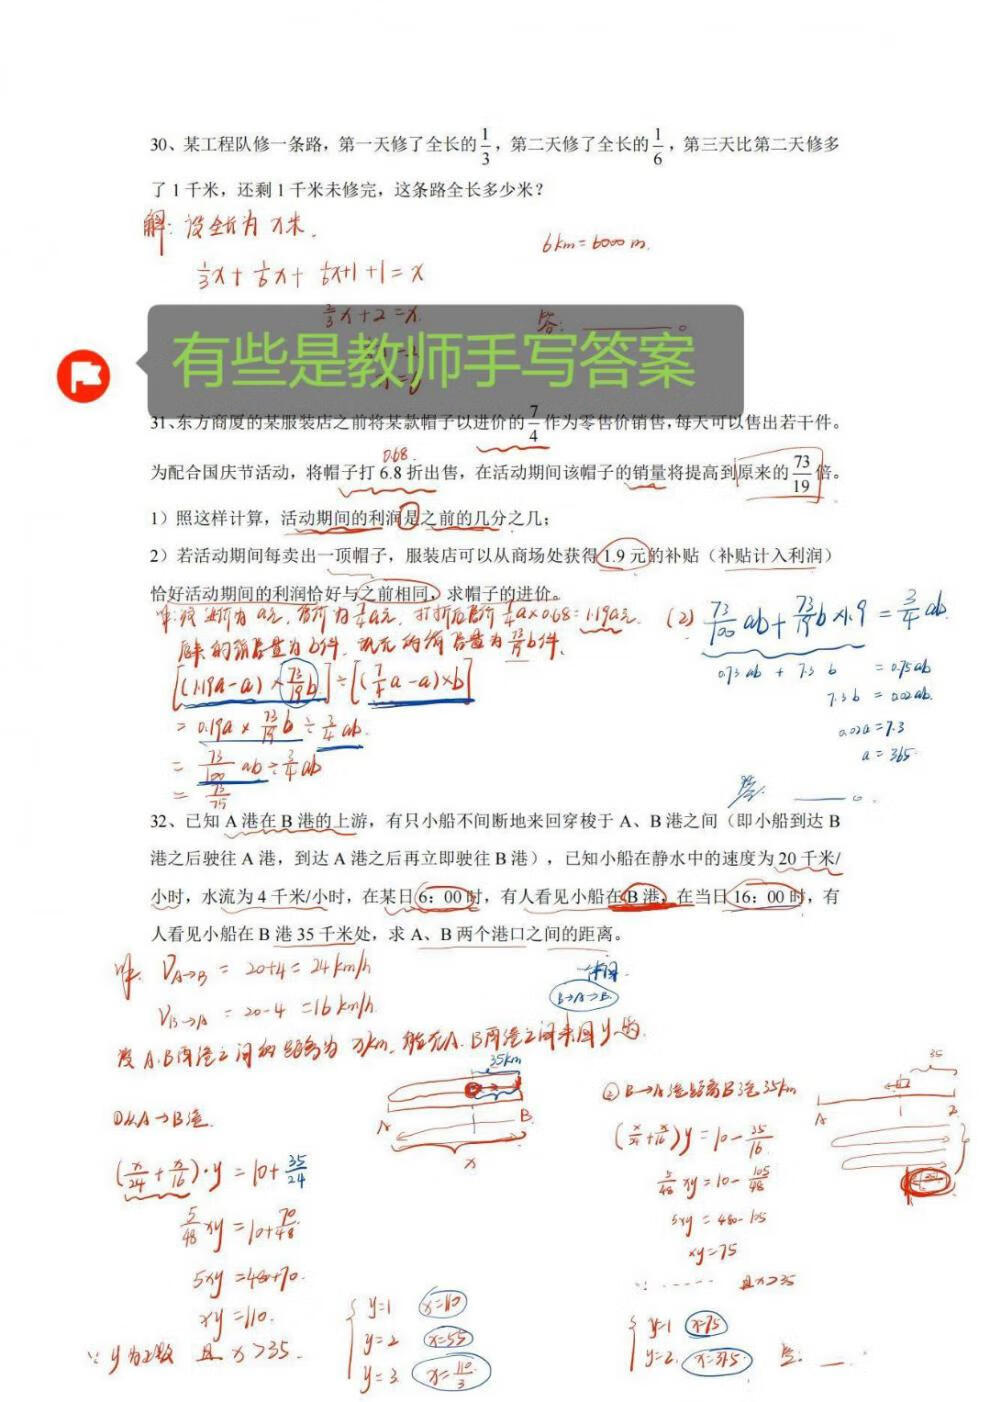 30、某工程队修一条路，第一天修了全长的1/3，第二天修了全长的1/6，第三天比第二天修多
了1千米，还剩1千米未修完，这条路全长多少米？
解：设全长为x米．
6km=6000m.
1/3x+1/6x+1/6x+1+1=x
2/3x+2=x.
答：______。
有些是教师手写答案
31、东方商厦的某服装店之前将某款帽子以进价的7/4作为零售价销售，每天可以售出若干件。
0.68
为配合国庆节活动，将帽子打6.8折出售，在活动期间该帽子的销量将提高到原来的73/19倍。
1）照这样计算，活动期间的利润是之前的几分之几；
2）若活动期间每卖出一顶帽子，服装店可以从商场处获得1.9元的补贴（补贴计入利润）
恰好活动期间的利润恰好与之前相同，求帽子的进价。
解：设进价为a元，售价为7/4a元，打折后售价7/4a×0.68=1.19a元．
原来的销售量为b件，现在的销售量为73/19b件．
[(1.19a-a)×73/19b]÷[(7/4a-a)×b]
=0.19a×73/19b÷3/4ab.
=73/100ab÷3/4ab
=73/75
(2) 73/100ab+73/19b×1.9=3/4ab
0.73ab+7.3b=0.75ab
7.3b=0.02ab.
0.02a=7.3
a=365.
答：______。
32、已知A港在B港的上游，有只小船不间断地来回穿梭于A、B港之间（即小船到达B
港之后驶往A港，到达A港之后再立即驶往B港），已知小船在静水中的速度为20千米/
小时，水流为4千米/小时，在某日6：00时，有人看见小船在B港，在当日16：00时，有
人看见小船在B港35千米处，求A、B两个港口之间的距离。
解．V A→B=20+4=24km/h
V B→A=20-4=16km/h.
B→A→B.
设A.B两港之间的距离为xkm．船在A.B两港之间来回y趟．
35km
A B
x
①从A→B港．
(x/24+x/16)·y=10+35/24
5/48xy=10+70/48
5xy=480+70.
xy=110.
∵y为正数 且x>35．
y=1 x=110
y=2 x=55
y=3 x=110/3
②B→A港距离B港35km
35
A B
(x/24+x/16)y=10-35/16
5/48xy=10-105/48
5xy=480-105
xy=75
∵······ 且x>35
y=1 x=75
y=2. x=37.5
答：__